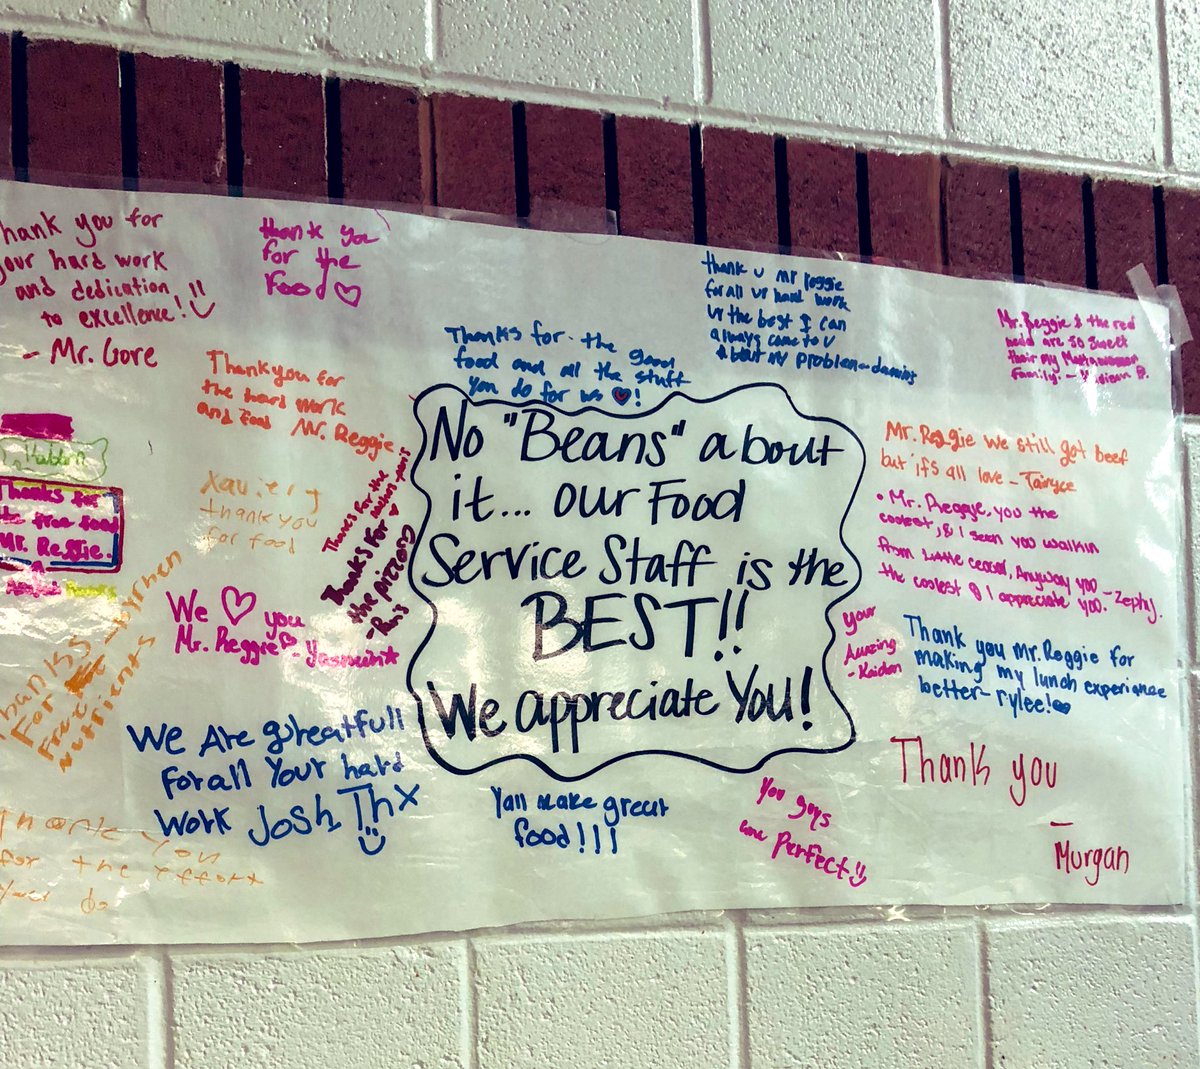 hank you for
your hard work
and dedication
to excellence!
- Mr. Gore
thank you
for the
food
Thanks for the good
food and all the stuff
you do for us !
thank u mr reggie
for all ur hard work
ur the best I can
always come to u
about my problem - 
Mr. Reggie & the red
head are so sweet
their my
Family. -
Thankyou for
the hard work
and food Mr. Reggie
Xavier
thank you
for food
Thanks for the
Thanks for
the pizzong
- Ru's
No "Beans" about
it... our Food
Service Staff is the
BEST!!
We appreciate You!
Mr. Reggie we still got beef
but it's all love - Tairyce
• Mr. Reggie, you the
coolest, & I seen you walkin
from little ceasar, Anyway you - Zephy.
the coolest & I appreciate you.
Thanks for
the free food
Mr. Reggie.
We you
Mr. Reggie -
your
Amazing
- Kaidan
Thank you Mr. Reggie for
making my lunch experience
better - rylee!
hanks
For
Free
nutrients
We Are greatfull
for all Your hard
work Josh Thx
Yall make great
food!!!
You guys
are perfect!
Thank you
- Murgan
Thank you
for the effort